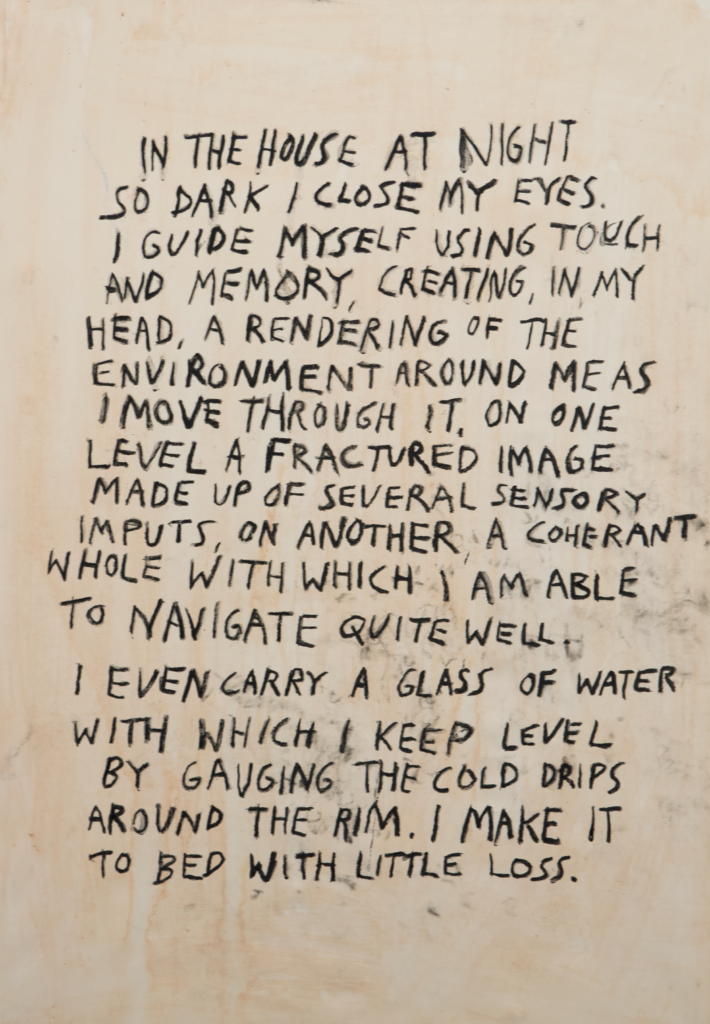 IN THE HOUSE AT NIGHT
SO DARK I CLOSE MY EYES.
I GUIDE MYSELF USING TOUCH
AND MEMORY, CREATING, IN MY
HEAD, A RENDERING OF THE
ENVIRONMENT AROUND ME AS
I MOVE THROUGH IT. ON ONE
LEVEL A FRACTURED IMAGE
MADE UP OF SEVERAL SENSORY
IMPUTS, ON ANOTHER, A COHERANT
WHOLE WITH WHICH I AM ABLE
TO NAVIGATE QUITE WELL.
I EVEN CARRY A GLASS OF WATER
WITH WHICH I KEEP LEVEL
BY GAUGING THE COLD DRIPS
AROUND THE RIM. I MAKE IT
TO BED WITH LITTLE LOSS.